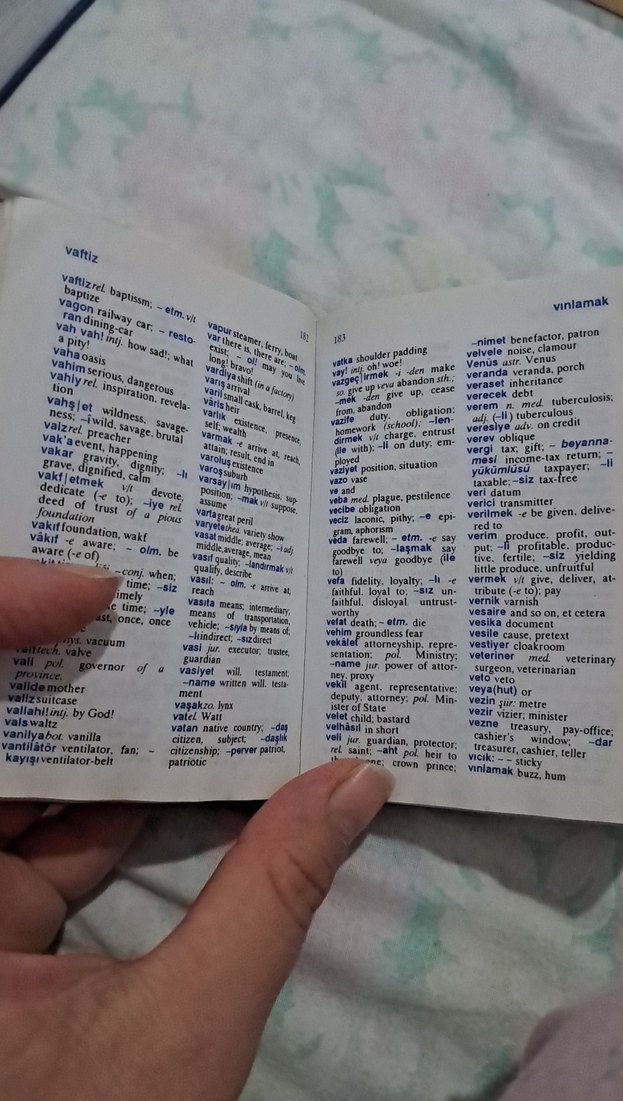 vaftiz
182
vaftiz rel. baptissm; ~ etm. v/t
baptize
vagon railway car; ~ resto-
ran dining-car
vah vah! intj. how sad!; what
a pity!
vaha oasis
vahim serious, dangerous
vahiy rel. inspiration, revela-
tion
vahş|et wildness, savage-
ness; ~i wild, savage, brutal
vaiz rel. preacher
vak'a event, happening
vakar gravity, dignity; ~lı
grave, dignified, calm
vakf|etmek v/t devote,
dedicate (-e to); ~iye rel.
deed of trust of a pious
foundation
vakıf foundation, wakf
vâkıf -e aware; ~ olm. be
aware (-e of)
~conj. when;
time; ~siz
imely
e time; ~yle
ast, once, once
vacuum
tech. valve
vali pol. governor of a
province.
valide mother
valiz suitcase
vallahi! intj. by God!
vals waltz
vanilya bot. vanilla
vantilâtör ventilator, fan; ~
kayışı ventilator-belt
vapur steamer, ferry, boat
var there is, there are; ~ olm.
exist; ~ ol! may you live
long! bravo!
vardiya shift (in a factory)
varış arrival
varil small cask, barrel, keg
vâris heir
varlık existence, presence,
self; wealth
varmak -e arrive at, reach,
attain; result, end in
varoluş existence
varoş suburb
varsay|ım hypothesis, sup-
position; ~mak v/t suppose,
assume
varta great peril
varyete thea. variety show
vasat middle, average; ~i adj.
middle, average, mean
vasıf quality; ~landırmak v/t
qualify, describe
vasıl: ~ olm. -e arrive at,
reach
vasıta means; intermediary;
means of transportation,
vehicle; ~sıyla by means of;
~lı indirect; ~sız direct
vasi jur. executor; trustee,
guardian
vasiyet will, testament;
~name written will, testa-
ment
vaşak zo. lynx
vat el. Watt
vatan native country; ~daş
citizen, subject; ~daşlık
citizenship; ~perver patriot,
patriotic
183
vınlamak
vatka shoulder padding
vay! intj. oh! woe!
vazgeç|irmek -i -den make
so. give up veya abandon sth.;
~mek -den give up, cease
from, abandon
vazife duty, obligation;
homework (school); ~len-
dirmek v/t charge, entrust
(ile with); ~li on duty; em-
ployed
vaziyet position, situation
vazo vase
ve and
veba med. plague, pestilence
vecibe obligation
veciz laconic, pithy; ~e epi-
gram, aphorism
veda farewell; ~ etm. -e say
goodbye to; ~laşmak say
farewell veya goodbye (ile
to)
vefa fidelity, loyalty; ~lı -e
faithful, loyal to; ~sız un-
faithful, disloyal untrust-
worthy
vefat death; ~ etm. die
vehim groundless fear
vekâlet attorneyship, repre-
sentation; pol. Ministry;
~name jur. power of attor-
ney, proxy
vekil agent, representative;
deputy, attorney; pol. Min-
ister of State
velet child; bastard
velhâsıl in short
veli jur. guardian, protector;
rel. saint; ~aht pol. heir to
one; crown prince;
~nimet benefactor, patron
velvele noise, clamour
Venüs astr. Venus
veranda veranda, porch
veraset inheritance
verecek debt
verem n. med. tuberculosis;
adj. (~li) tuberculous
veresiye adv. on credit
verev oblique
vergi tax; gift; ~ beyanna-
mesi income-tax return; ~
yükümlüsü taxpayer; ~li
taxable; ~siz tax-free
veri datum
verici transmitter
verilmek -e be given, delive-
red to
verim produce, profit, out-
put; ~li profitable, produc-
tive, fertile; ~siz yielding
little produce, unfruitful
vermek v/t give, deliver, at-
tribute (-e to); pay
vernik varnish
vesaire and so on, et cetera
vesika document
vesile cause, pretext
vestiyer cloakroom
veteriner med. veterinary
surgeon, veterinarian
veto veto
veya(hut) or
vezin şiir: metre
vezir vizier; minister
vezne treasury, pay-office;
cashier's window; ~dar
treasurer, cashier, teller
vıcık: ~ ~ sticky
vınlamak buzz, hum